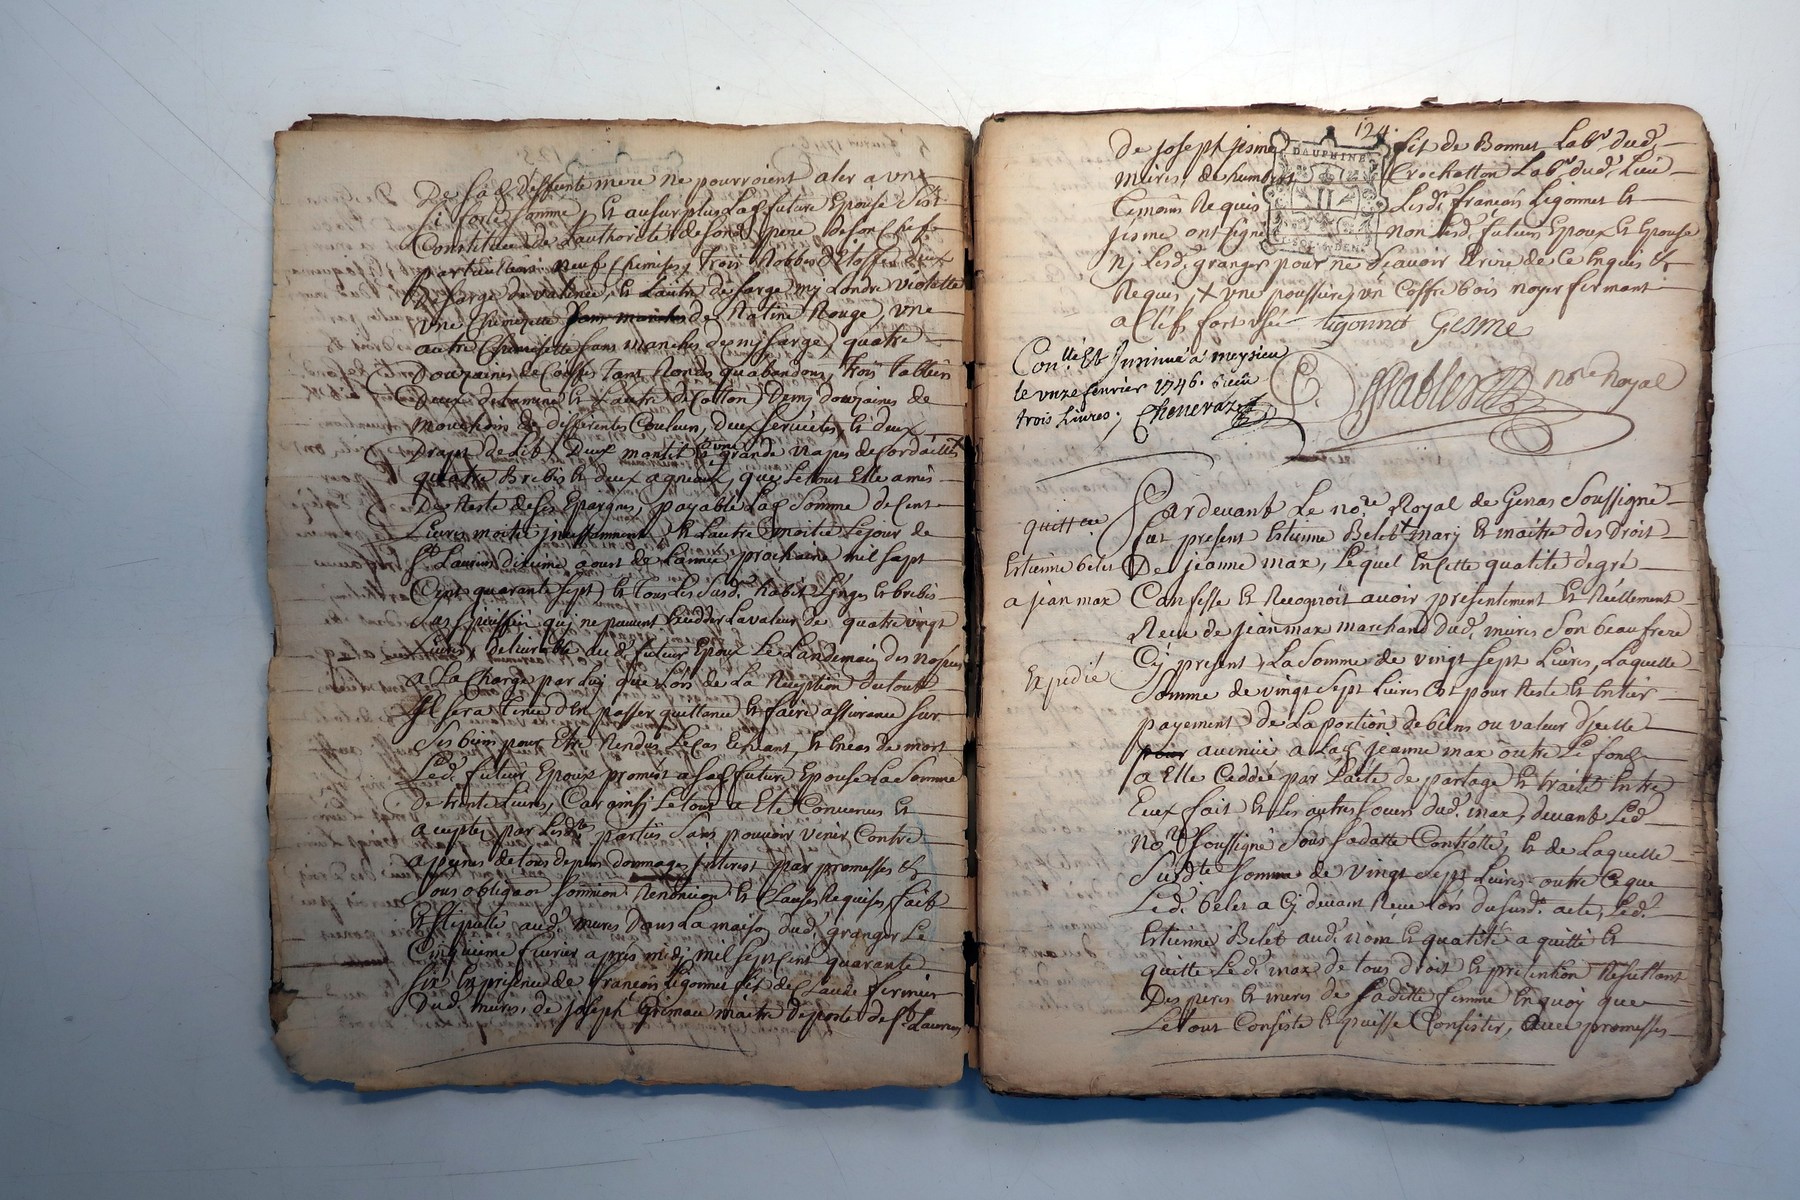 De lad. deffunte mere ne pourroient aler a une
si forte somme, et au surplus lad. future Epouse s'est
Constituée de l'authorité de sond. pere, de son Chef
particulier neuf chemises, trois Robbes d'Etoffe deux
de sarge de valence, et l'autre de sarge my Londre violette
une Chemizette de Ratine Rouge, une
autre Chemisette sans manches de my sarge, quatre
Douzaines de Coiffes tant Rondes qu'abandons, trois tabliers
deux d'etamine et l'autre de Cotton, Demy douzaines de
mouchoirs de differentes Couleurs, deux serviettes, et deux
Draps de Lit, Deux mantit et une grande Napes de Cordaillet
quatre Brebis et deux agneaux, que le tout Elle a mis
De Reste de ses Epargnes, payable lad. somme de Cent
Livres moitié incessamment et l'autre moitié le jour de
St. Laurent dixieme aoust de l'année prochaine mil sept
Cent quarante sept, et tous les susd. habits Linges et brebis
qui ne peuvent Exceder la valeur de quatre vingt
Livres, delivrable aud. futur Epoux le Landemain des nopces
a la Charge par Luy que Lors de La Reception du tout
Il sera tenu d'En passer quittance et faire assurance sur
ses biens pour Etre Rendus le Cas Echeant, et En cas de mort
Led. futur Epoux promet a sad. future Epouse la somme
de trente Livres, Car ainsy le tout a Eté Convenus et
accepté par lesdtes parties sans pouvoir venir Contre
a peines de tous depens dommages interest par promesses et
sous obligaon soumion Renonciaon et Clauses Requises, fait
et stipullé aud. mures Dans la maison dud. granger Le
Cinquieme fevrier apres midy mil sept Cent quarante
six En presence de françois Ligonnet fils de Claude fermier
Dud. mures, de Joseph Grimau maitre de poste de St. Laurent
124.
DAUPHINE
de joseph jisme fils de Bonnet Labr. dud.
mures, de humbert Crochatton Labr. dud. Lieu
temoins Requis Lesd. françois Ligonnet et
jisme ont signé non Lesd. futurs Epoux et Epouse
Ny Lesd. granger pour ne sçavoir Ecrire de Ce Enquis et
Requis, x une poussiere, un Coffre bois noyer fermant
a Clefs fort usé Ligonnet Gesme
Conllé. Et Insinué a meysieu
le onze fevrier 1746. Receu
trois Livres; Chenevaz
Nore Royal
quittce
Estienne belet
a jean max
Expedié
Pardevant Le nore. Royal de Genas soussigné
fut present Estienne Belet mary et maitre des Droit
De jeanne max, Lequel En Cette qualité de gré
Confesse et Recognoit avoir presentement et Réellement
Receu de jean max marchand dud. mures son beau frere
Cy present, La somme de vingt sept Livres, Laquelle
somme de vingt sept Livres Est pour Reste et Entier
payement de La portion de biens ou valeur d'jcelle
avenüe a Lad. jeanne max outre Le fond
a Elle Ceddée par L'acte de partage et traité Entre
Eux fait et les autres soeurs dud. max, devant Led.
Nore. soussigné sous sa datte Controllé, et de Laquelle
susdte somme de vingt sept Livres outre Ce que
Led. belet a Cy devant Receu Lors du susd. acte, Led.
Estienne Belet aud. nom et qualité a quitté et
quitte Led. max de tous droit et pretention Resultant
Des peres et meres de sadite femme En quoy que
Le tout Consiste et puisse Consister, avec promesses